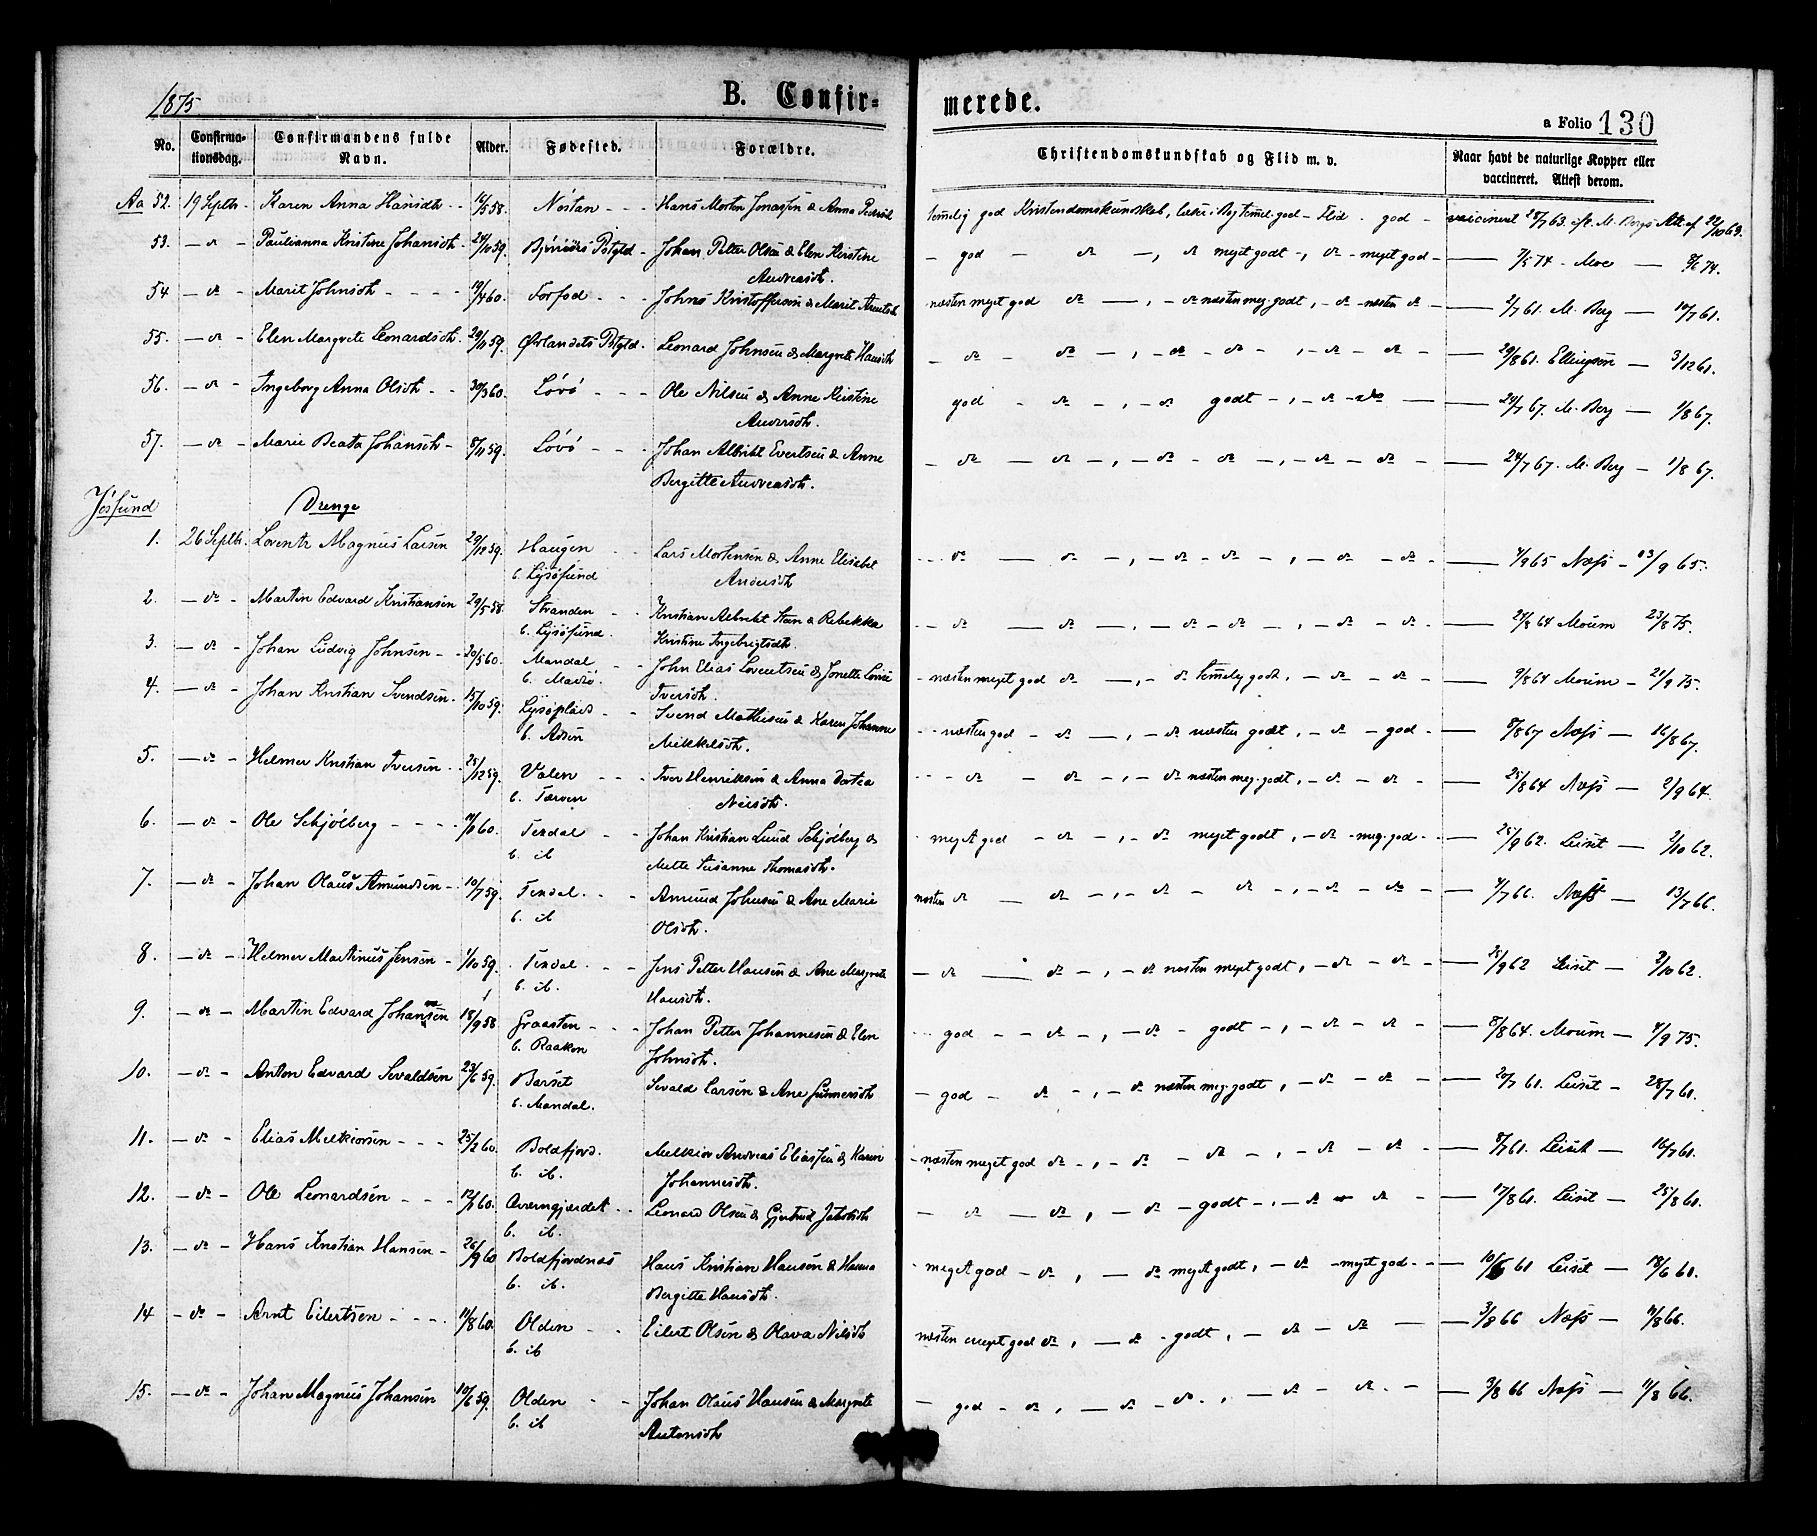 1875.
B. Confir-
merede.
a Folio 130
No.
Confirma-
tionsdag.
Confirmandens fulde
Navn.
Alder.
Fødested.
Forældre.
Christendomskundskab og Flid m. v.
Naar havt de naturlige Kopper eller
vaccineret. Attest derom.
Aa 52. 19 Septbr. Karen Anna Hansdtr. 58. Hans Morten Jonassen & Anna
temelig god Kristendomskundskab, Flid god vaccineret 63.
53. do Paulianna Kristine Johansdtr. 24/10 59. Bjørnørs Pstgld. Johan Petter Olsen & Elen Kirstine
Andreasdtr.
god do do meget godt, do meget god 7/5 74. Moe 74.
54 do Marit Johnsdtr. 60. Forfod Johns Kristoffersen & Marit
næsten meget god do do næsten meg. godt, do næsten do 2/7 61. M. Berg 10/7 61.
55. do Elen Margrete Leonardsdtr. 20/11 59. Ørlandets Pstgld. Leonard Johnsen & Margrete Hansdtr
do do do do do do 29/8 61. Ellingsen 3/12 61.
56. do Ingeborg Anna Olsdtr. 30/3 60. Løvø Ole Nilsen & Anne Kirstine
Andersdtr.
god do do godt do do 24/7 67. M. Berg 1/8 67.
57. do Marie Beata Johansdtr 8/11 59. Løvø Johan Albrikt Evertsen & Anne
Bergitte Andreasdtr.
do do do do do do 24/7 67. M. Berg 1/8 67.
Jøssund Drenge
1. 26 Septbr. Lorents Magnus Larsen 29/12 59. Haugen Lars Mortensen & Anne Elisabet
b. Lysøsund Andersdtr
do do do do do do 4/9 65 Næss 13/9 65.
2. do Martin Edvard Kristiansen 29/5 58. Stranden Kristian Albrikt Steen & Rebekka
b. Lysøsund. Kristine Ingebrigtsdtr.
do do do do do do 24/8 64 Moum 23/8 75.
3. do Johan Ludvig Johnsen 20/5 60. Mandal John Elias Lorentsen & Jonette Lovise
b. Madsø. Iversdtr.
næsten meget god do do temelig godt, do do 9/8 64 Moum 21/9 75.
4. do Johan Kristian Svendsen. 15/10 59. Lysøplads Svend Mathisen & Karen Johanne
b. Assen Mikkelsdtr.
næsten god do do næsten godt, do god 8/8 67 Næss 16/8 67.
5. do Helmer Kristian Iversen 25/12 59. Valen Iver Henriksen & Anna Dortea
b. Tarven Nilsdtr.
do do do næsten meg. godt, do do 25/8 64 Næss 2/9 64.
6. do Ole Schjølberg 60. Teksdal Johan Kristian Lund Schjølberg &
b. ib Mette Susanne Thomasdtr.
meget god do do meget godt, do meg. god 25/9 62. Leiset 2/10 62.
7. do Johan Olaus Amundsen 10/7 59. Amund Johnsen & Ane Marie
b. ib Olsdtr.
næsten do do do do do do 4/7 66. Næss 13/7 66.
8. do Helmer Martinus Jensen 1/10 59. Jens Petter Hansen & Ane Margrete
b. ib. Hansdtr.
do do do næsten meget godt, do do 25/9 62 Leiset 2/10 62.
9. do Martin Edvard Johansen 18/9 58 Graasten Johan Petter Johannesen & Elen
b. Raaken Johnsdtr.
god do do godt do do 8/8 64. Moum 4/9 75.
10. do Anton Edvard Sevaldsen 23/6 59. Barset Sevald Larsen & Ane Gunnersdtr
b. Mandal.
god do do næsten meg. godt, do do 20/7 61. Leiset 28/7 61.
11. do Elias Melkiorsen 25/2 60. Boldfjord. Melkior Andreas Eliassen & Karen
b. ib. Johannesdtr.
næsten meget god do do do do do 8/7 61. Leiset 16/7 61.
12. do Ole Leonardsen 12/ 60. Overngjærdet Leonard Olsen & Gjertrud Jakobsdtr
b. ib.
do do do godt do do 17/8 61. Leiset 25/8 61.
13. do Hans Kristian Hansen 26/ 60 Boldfjordnæs Hans Kristian Hansen & Hanna
b. ib. Bergitte Hansdtr.
meget god do do meget godt, do meget god 10/6 61 Leiset 18/6 61.
14 do Arnt Eilertsen 11/8 60. Olden Eilert Olsen & Olava Nilsdtr
b. ib
næsten meget god do, do godt, do do 3/8 66 Næss 11/8 66.
15. do Johan Magnus Johansen 10/6 59. Olden Johan Olaus Hansen & Margrete
b. ib Antonsdtr
god do, do do, do do 3/8 66 Næss 11/8 66.